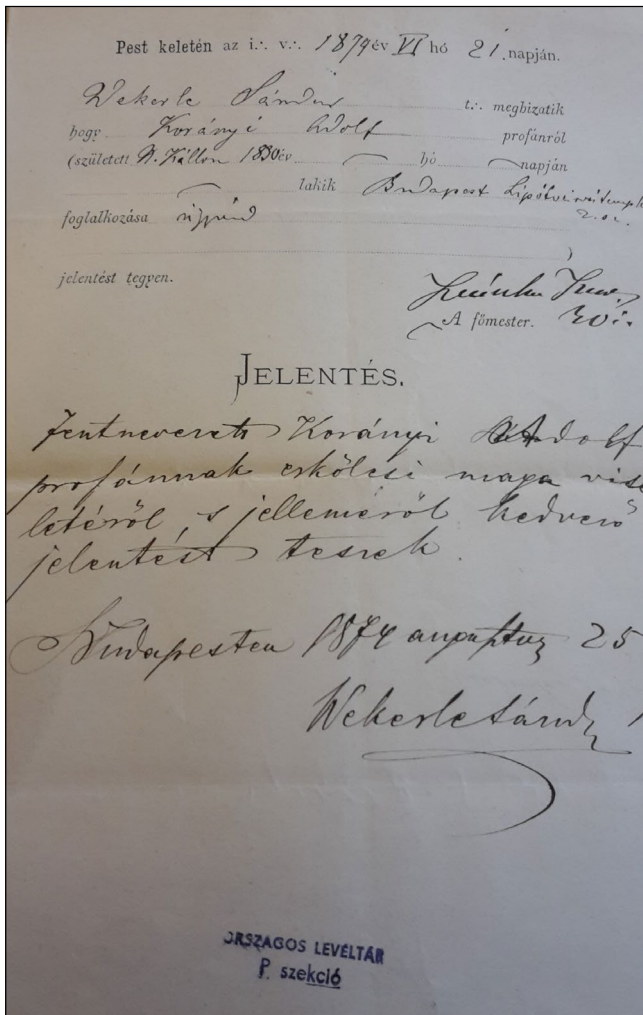 Pest keletén az i∴ v∴ 1874 év VI hó 21. napján.
Wekerle Sándor t∴ megbizatik
hogy Korányi Adolf profánról
(született N. Kállon 1830 év hó napján
lakik Budapest
foglalkozása ügyvéd
)
jelentést tegyen.
A főmester.
JELENTÉS.
Fentnevezett Korányi Adolf
profánnak erkölcsi maga vise
letéről, s jelleméről kedvező
jelentést teszek.
Budapesten 1874 augusztus 25
Wekerle Sándor
ORSZÁGOS LEVÉLTÁR
P. szekció